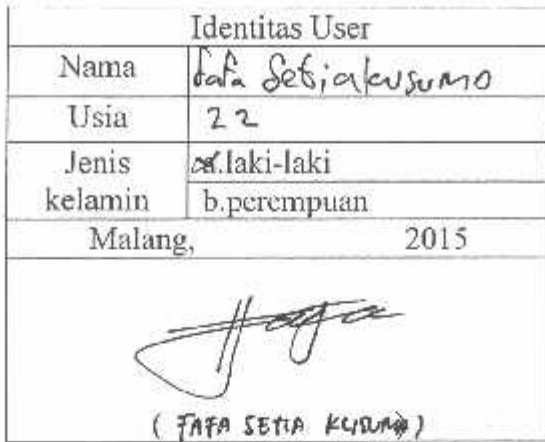 Identitas User
Nama fafa Setiakusumo
Usia 22
Jenis kelamin a.laki-laki
b.perempuan
Malang, 2015
fafa
( FAFA SETIA KUSUMO )